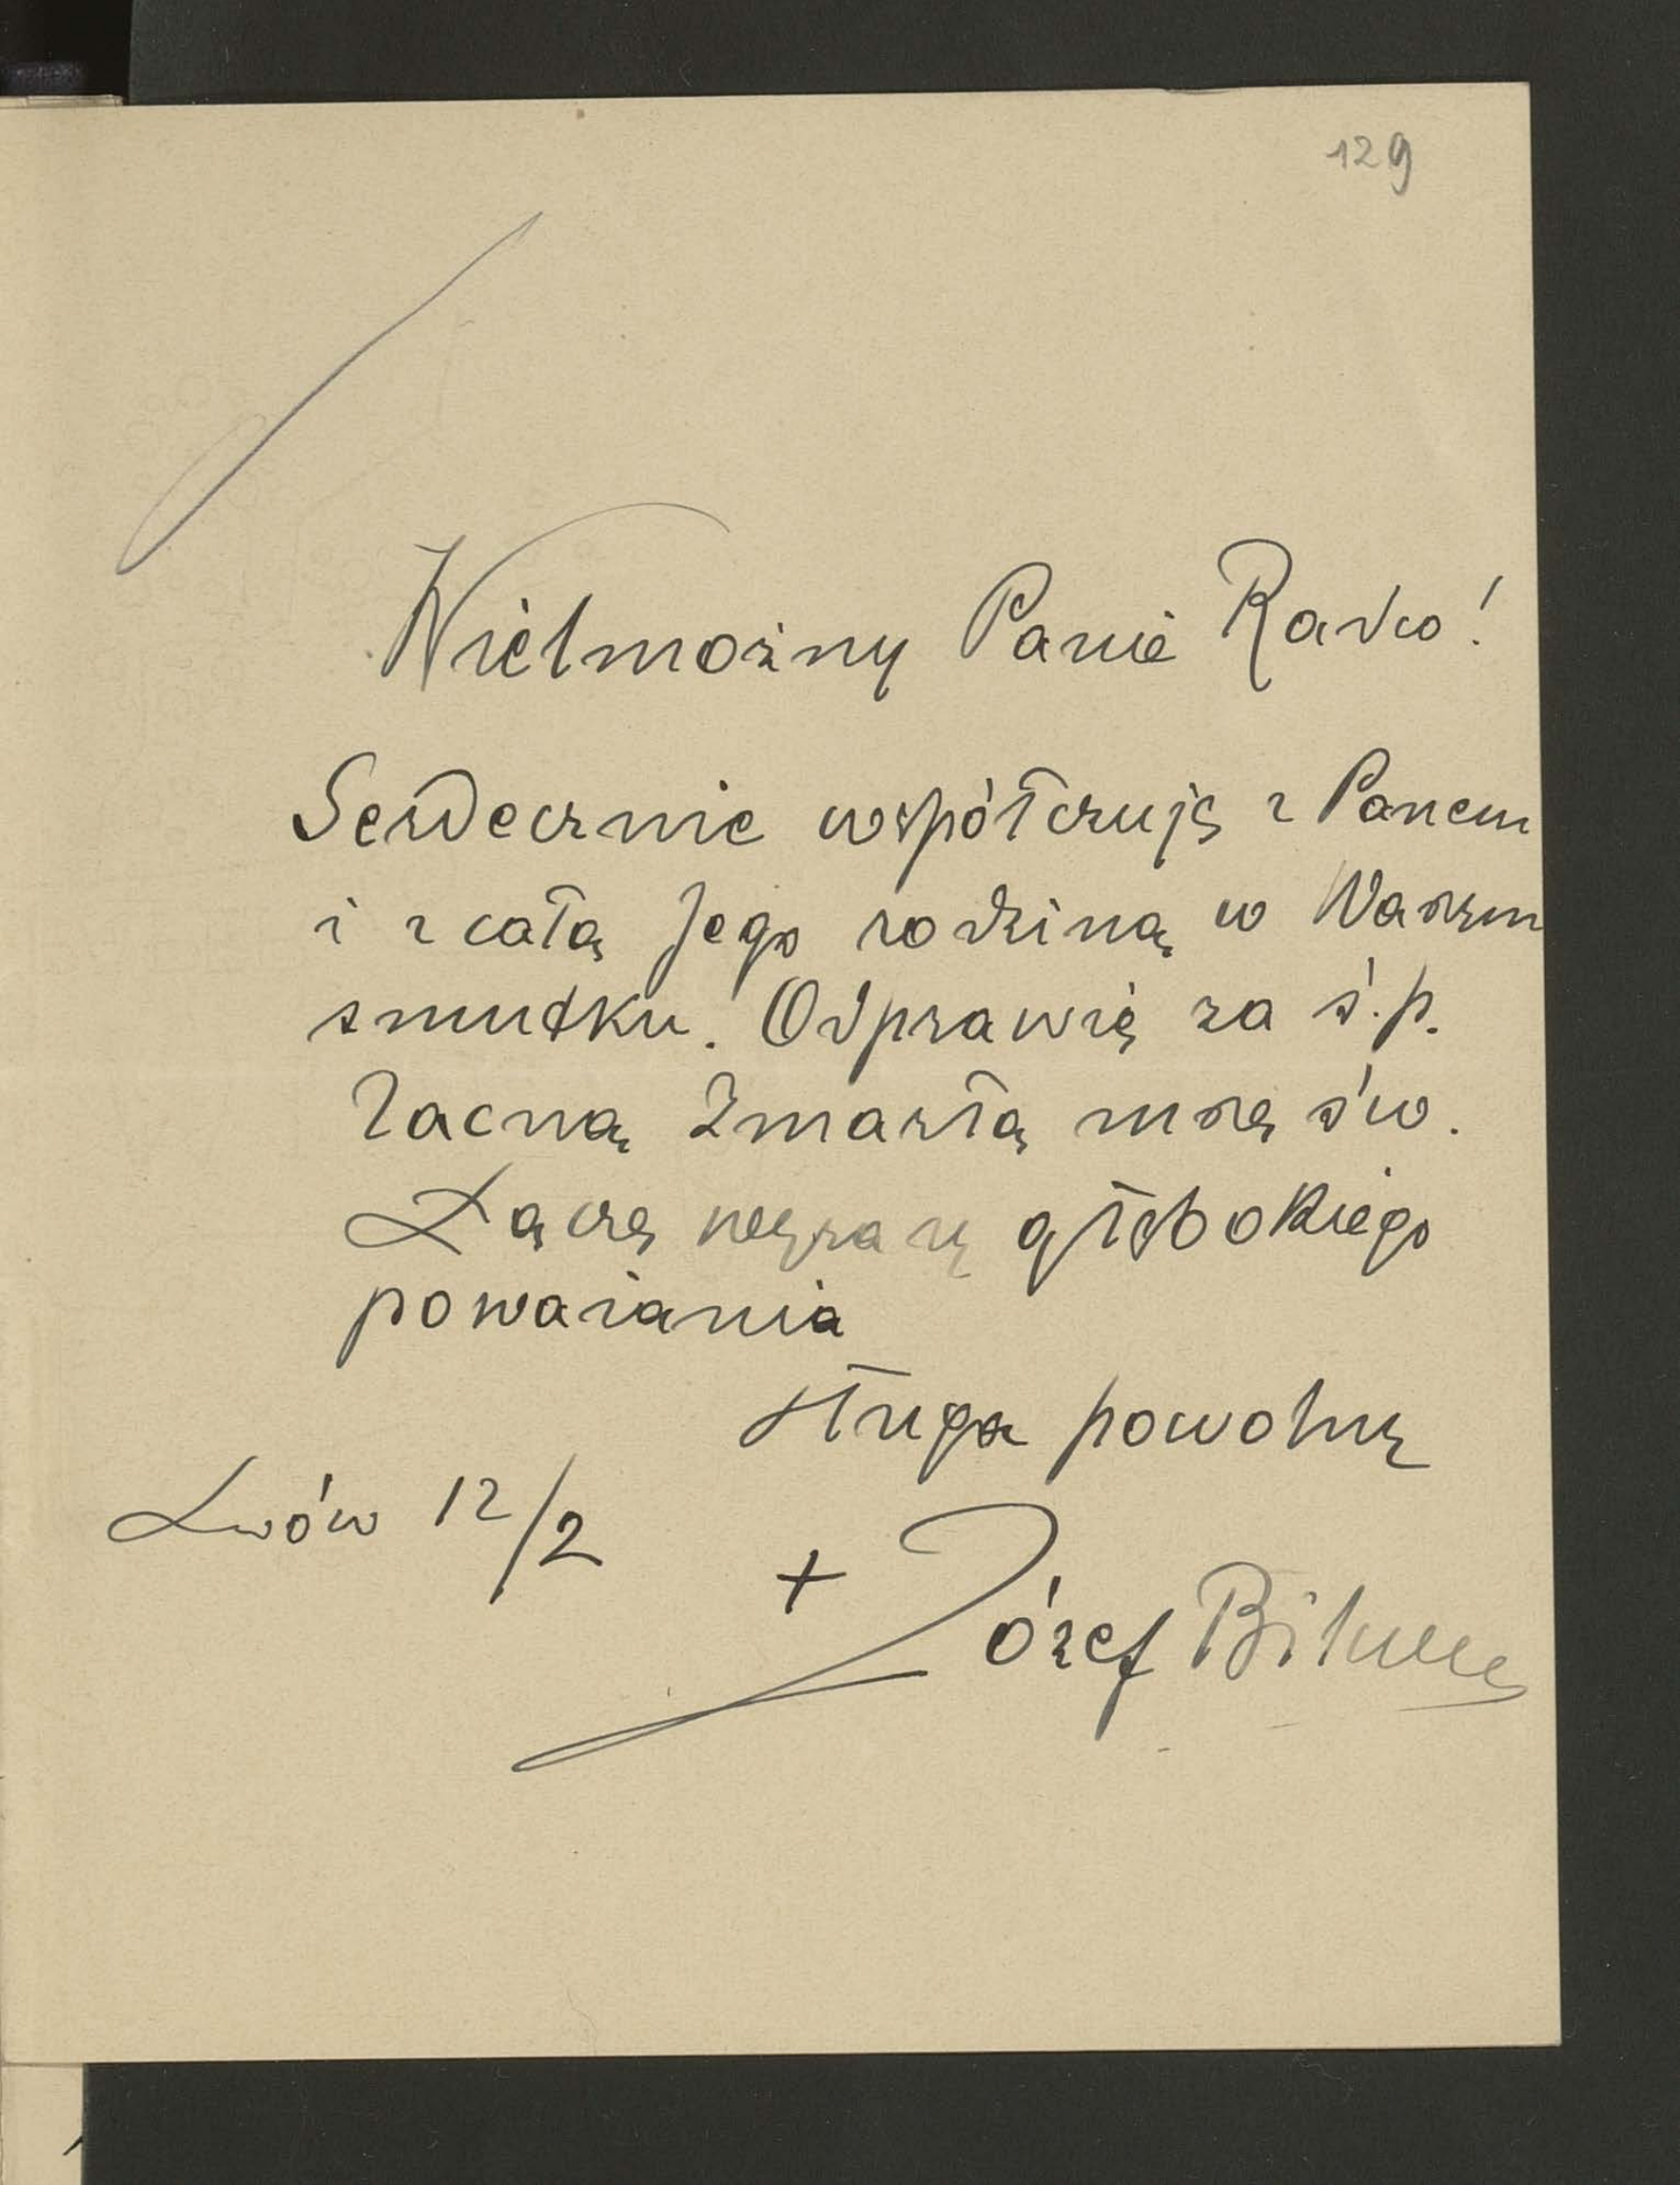 129
Wielmożny Panie Radco!
Serdecznie współczuję z Panem
i z całą Jego rodziną w Waszym
smutku. Odprawię za ś.p.
Zacną Zmarłą mszę św.
Łączę wyrazy głębokiego
poważania
sługa powolny
Lwów 12/2
+ Józef Bilczewski